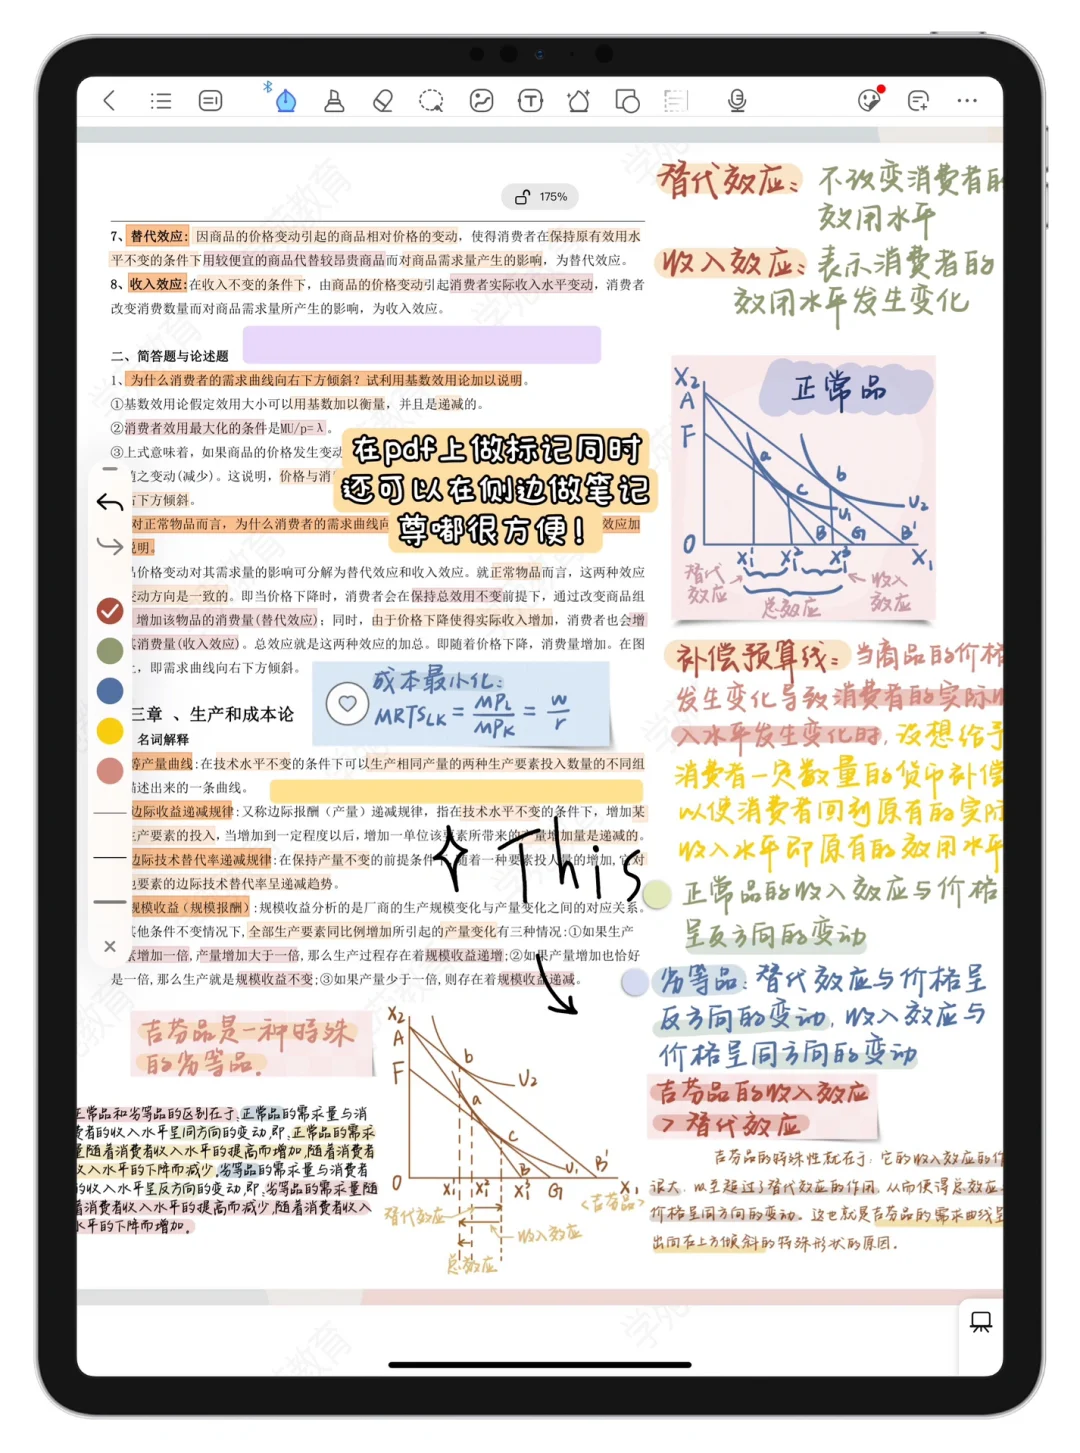 175%
7、替代效应：因商品的价格变动引起的商品相对价格的变动，使得消费者在保持原有效用水
平不变的条件下用较便宜的商品代替较昂贵商品而对商品需求量产生的影响，为替代效应。
8、收入效应:在收入不变的条件下，由商品的价格变动引起消费者实际收入水平变动，消费者
改变消费数量而对商品需求量所产生的影响，为收入效应。
二、简答题与论述题
1、为什么消费者的需求曲线向右下方倾斜？试利用基数效用论加以说明。
①基数效用论假定效用大小可以用基数加以衡量，并且是递减的。
②消费者效用最大化的条件是MU/p=λ。
③上式意味着，如果商品的价格发生变动
随之变动(减少)。这说明，价格与消
右下方倾斜。
对正常物品而言，为什么消费者的需求曲线向
效应加
说明。
品价格变动对其需求量的影响可分解为替代效应和收入效应。就正常物品而言，这两种效应
变动方向是一致的。即当价格下降时，消费者会在保持总效用不变前提下，通过改变商品组
增加该物品的消费量(替代效应)；同时，由于价格下降使得实际收入增加，消费者也会增
其消费量(收入效应)。总效应就是这两种效应的加总。即随着价格下降，消费量增加。在图
上，即需求曲线向右下方倾斜。
在pdf上做标记同时
还可以在侧边做笔记
尊嘟很方便！
成本最小化:
MRTSLK = MPL/MPK = w/r
三章 、生产和成本论
名词解释
等产量曲线:在技术水平不变的条件下可以生产相同产量的两种生产要素投入数量的不同组
描述出来的一条曲线。
边际收益递减规律:又称边际报酬（产量）递减规律，指在技术水平不变的条件下，增加某
生产要素的投入，当增加到一定程度以后，增加一单位该要素所带来的产量增加量是递减的。
边际技术替代率递减规律:在保持产量不变的前提条件下，随着一种要素投入量的增加，它对
要素的边际技术替代率呈递减趋势。
规模收益（规模报酬）:规模收益分析的是厂商的生产规模变化与产量变化之间的对应关系。
其他条件不变情况下,全部生产要素同比例增加所引起的产量变化有三种情况:①如果生产
素增加一倍,产量增加大于一倍,那么生产过程存在着规模收益递增;②如果产量增加也恰好
是一倍,那么生产就是规模收益不变;③如果产量少于一倍,则存在着规模收益递减。
This
吉芬品是一种特殊
的劣等品.
正常品和劣等品的区别在于:正常品的需求量与消
费者的收入水平呈同方向的变动,即,正常品的需求
量随着消费者收入水平的提高而增加,随着消费者
收入水平的下降而减少.劣等品的需求量与消费者
的收入水平呈反方向的变动,即,劣等品的需求量随
着消费者收入水平的提高而减少,随着消费者收入
水平的下降而增加.
X2
A
F
b
a
c
U2
U1
0
X1 X2 X3 B G B' X1
<吉芬品>
替代效应
收入效应
总效应
替代效应: 不改变消费者的
效用水平
收入效应: 表示消费者的
效用水平发生变化
正常品
X2
A
F
a
b
c
U2
U1
0
B G B'
X1 X2 X3 X1
替代
效应
总效应
收入
效应
补偿预算线: 当商品的价格
发生变化导致消费者的实际收
入水平发生变化时, 设想给予
消费者一定数量的货币补偿
以使消费者回到原有的实际
收入水平即原有的效用水平
正常品的收入效应与价格
呈反方向的变动
劣等品: 替代效应与价格呈
反方向的变动, 收入效应与
价格呈同方向的变动
吉芬品的收入效应
> 替代效应
吉芬品的特殊性就在于: 它的收入效应的作
很大, 以至超过了替代效应的作用, 从而使得总效应
价格呈同方向的变动. 这也就是吉芬品的需求曲线呈
出向右上方倾斜的特殊形状的原因.